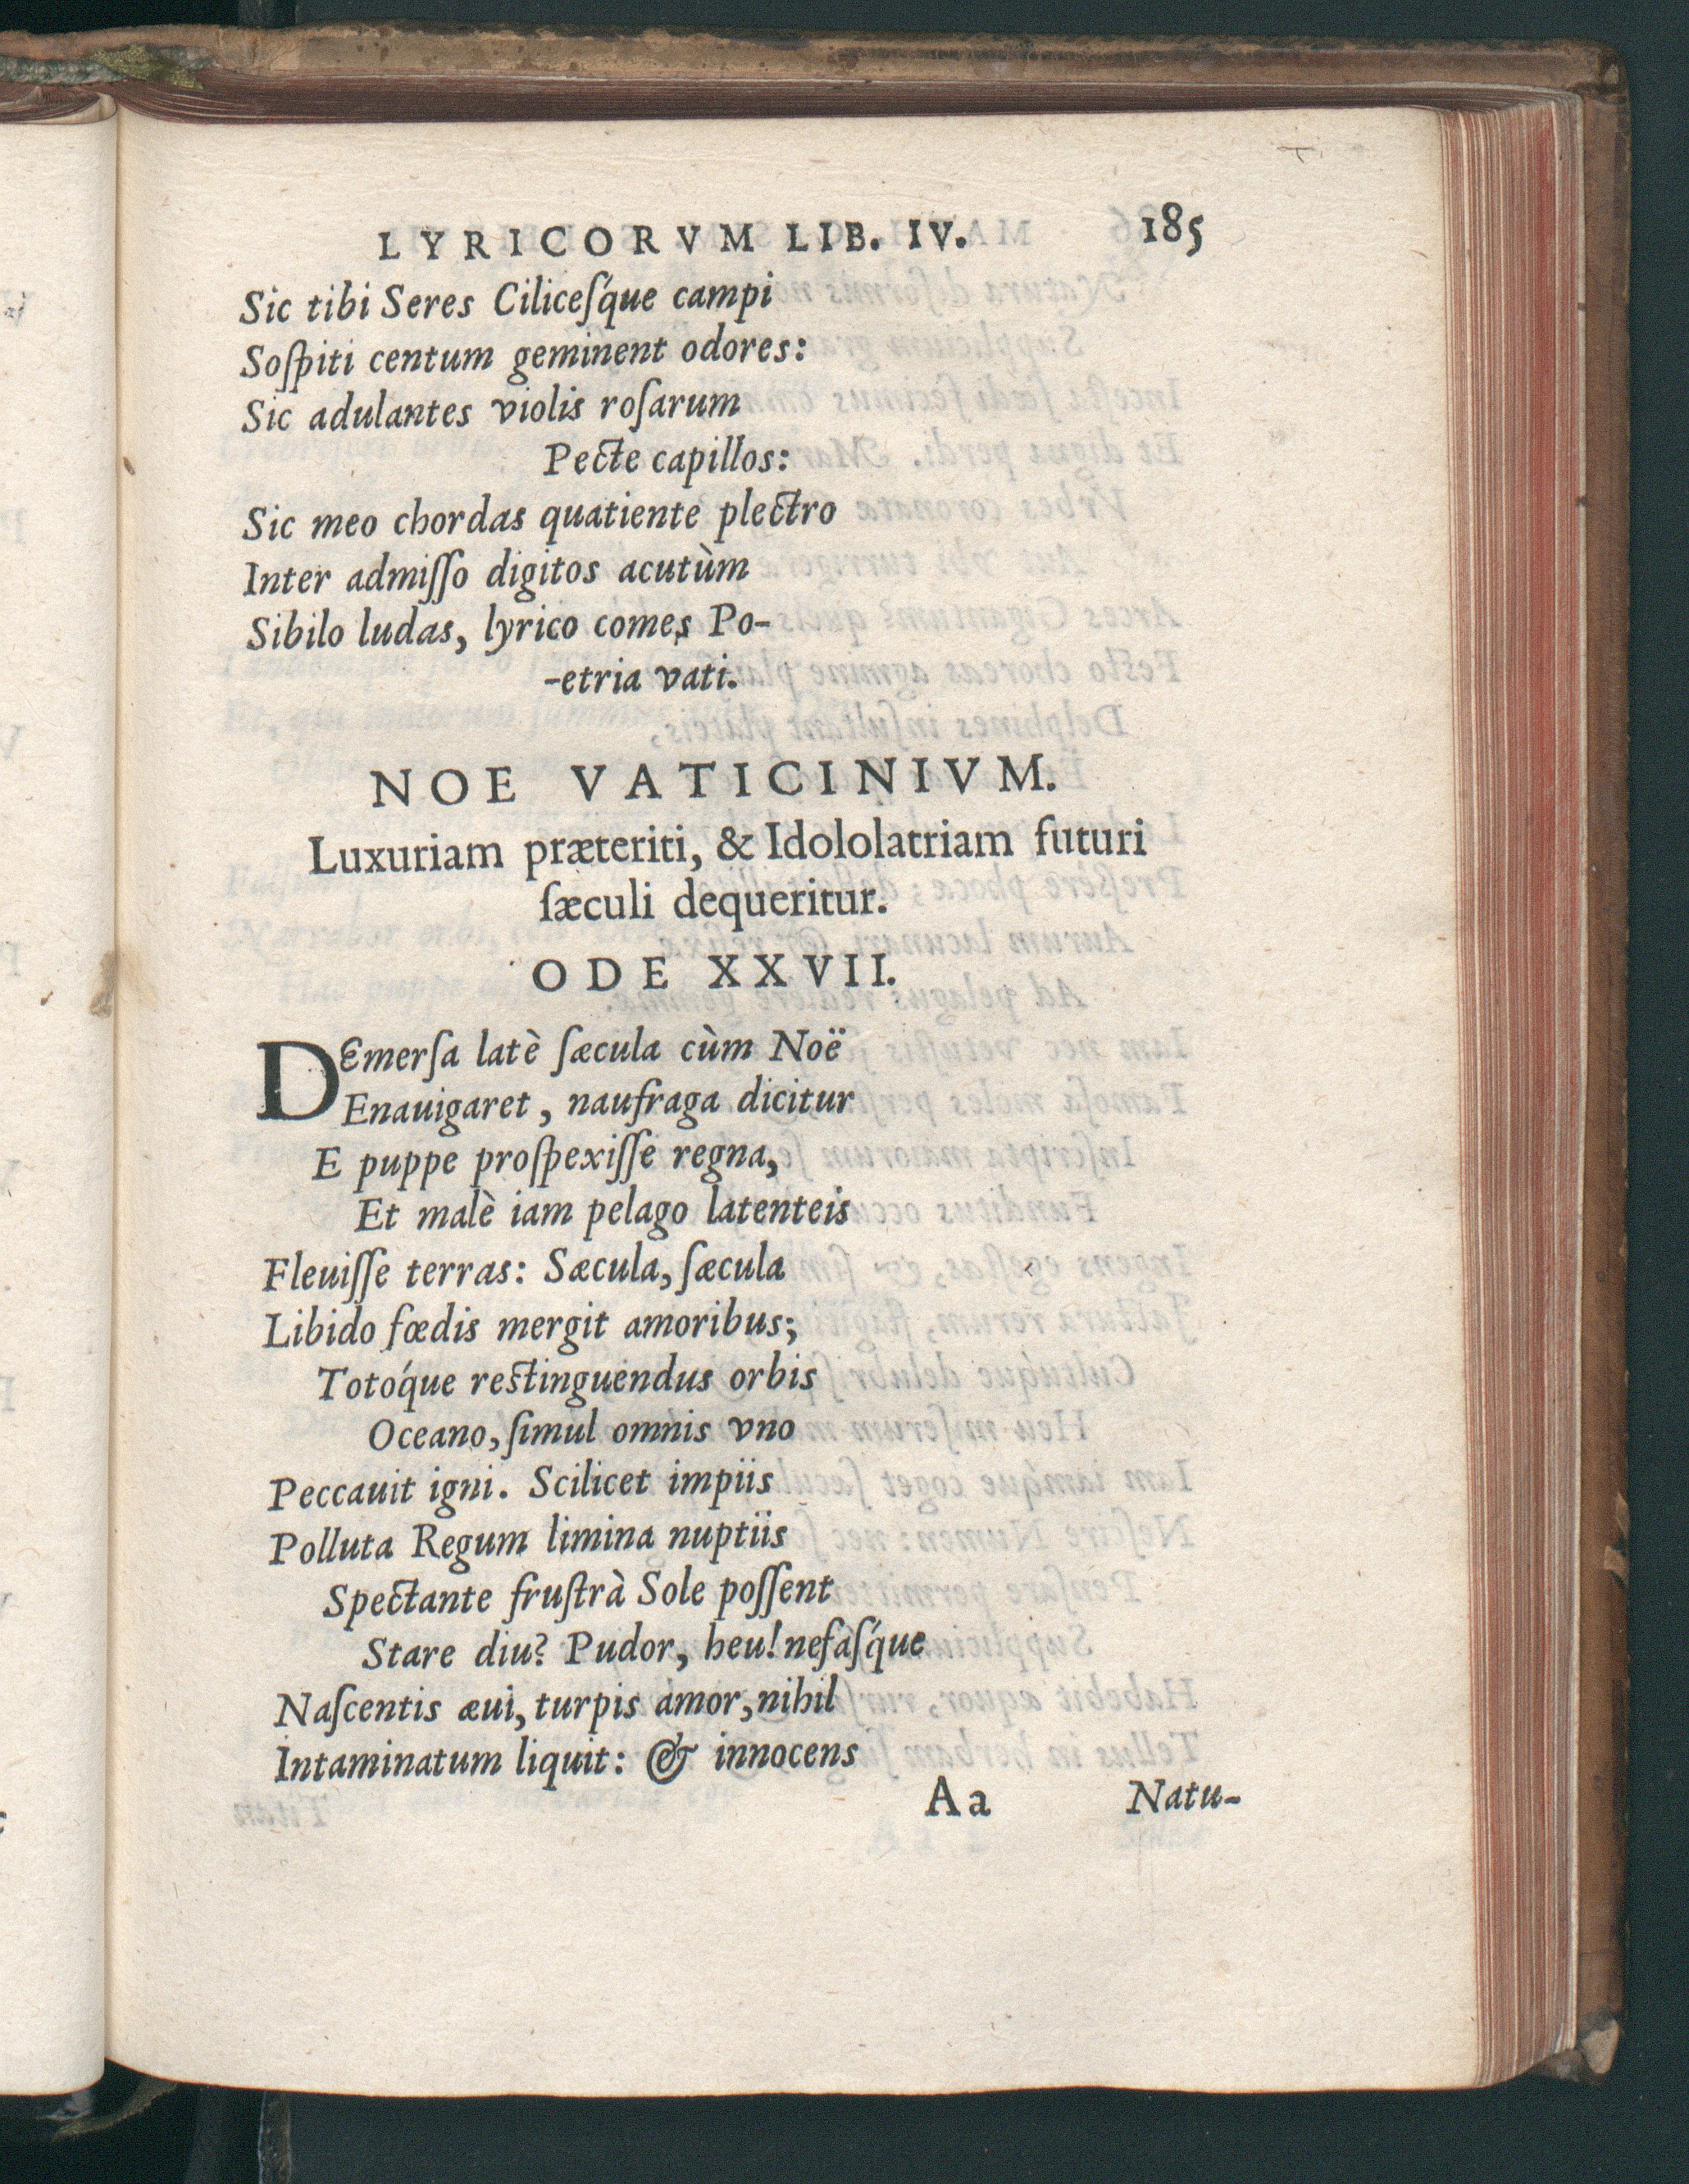 LYRICORVM LIB. IV. 185
Sic tibi Seres Ciliceſq́ue campi
Soſpiti centum geminent odores:
Sic adulantes violis roſarum
Pecte capillos:
Sic meo chordas quatiente plectro
Inter admiſſo digitos acutùm
Sibilo ludas, lyrico comes Po-
-etria vati.
NOE VATICINIVM.
Luxuriam præteriti, & Idololatriam futuri
ſæculi dequeritur.
ODE XXVII.
DEmerſa latè ſæcula cùm Noë
Enauigaret, naufraga dicitur
E puppe proſpexiſſe regna,
Et malè iam pelago latenteis
Fleuiſſe terras: Sæcula, ſæcula
Libido fœdis mergit amoribus;
Totóque restinguendus orbis
Oceano, ſimul omnis vno
Peccauit igni. Scilicet impiis
Polluta Regum limina nuptiis
Spectante fruſtrà Sole poſſent
Stare diu? Pudor, heu! nefaſq́ue
Naſcentis æui, turpis amor, nihil
Intaminatum liquit: & innocens
Aa Natu-